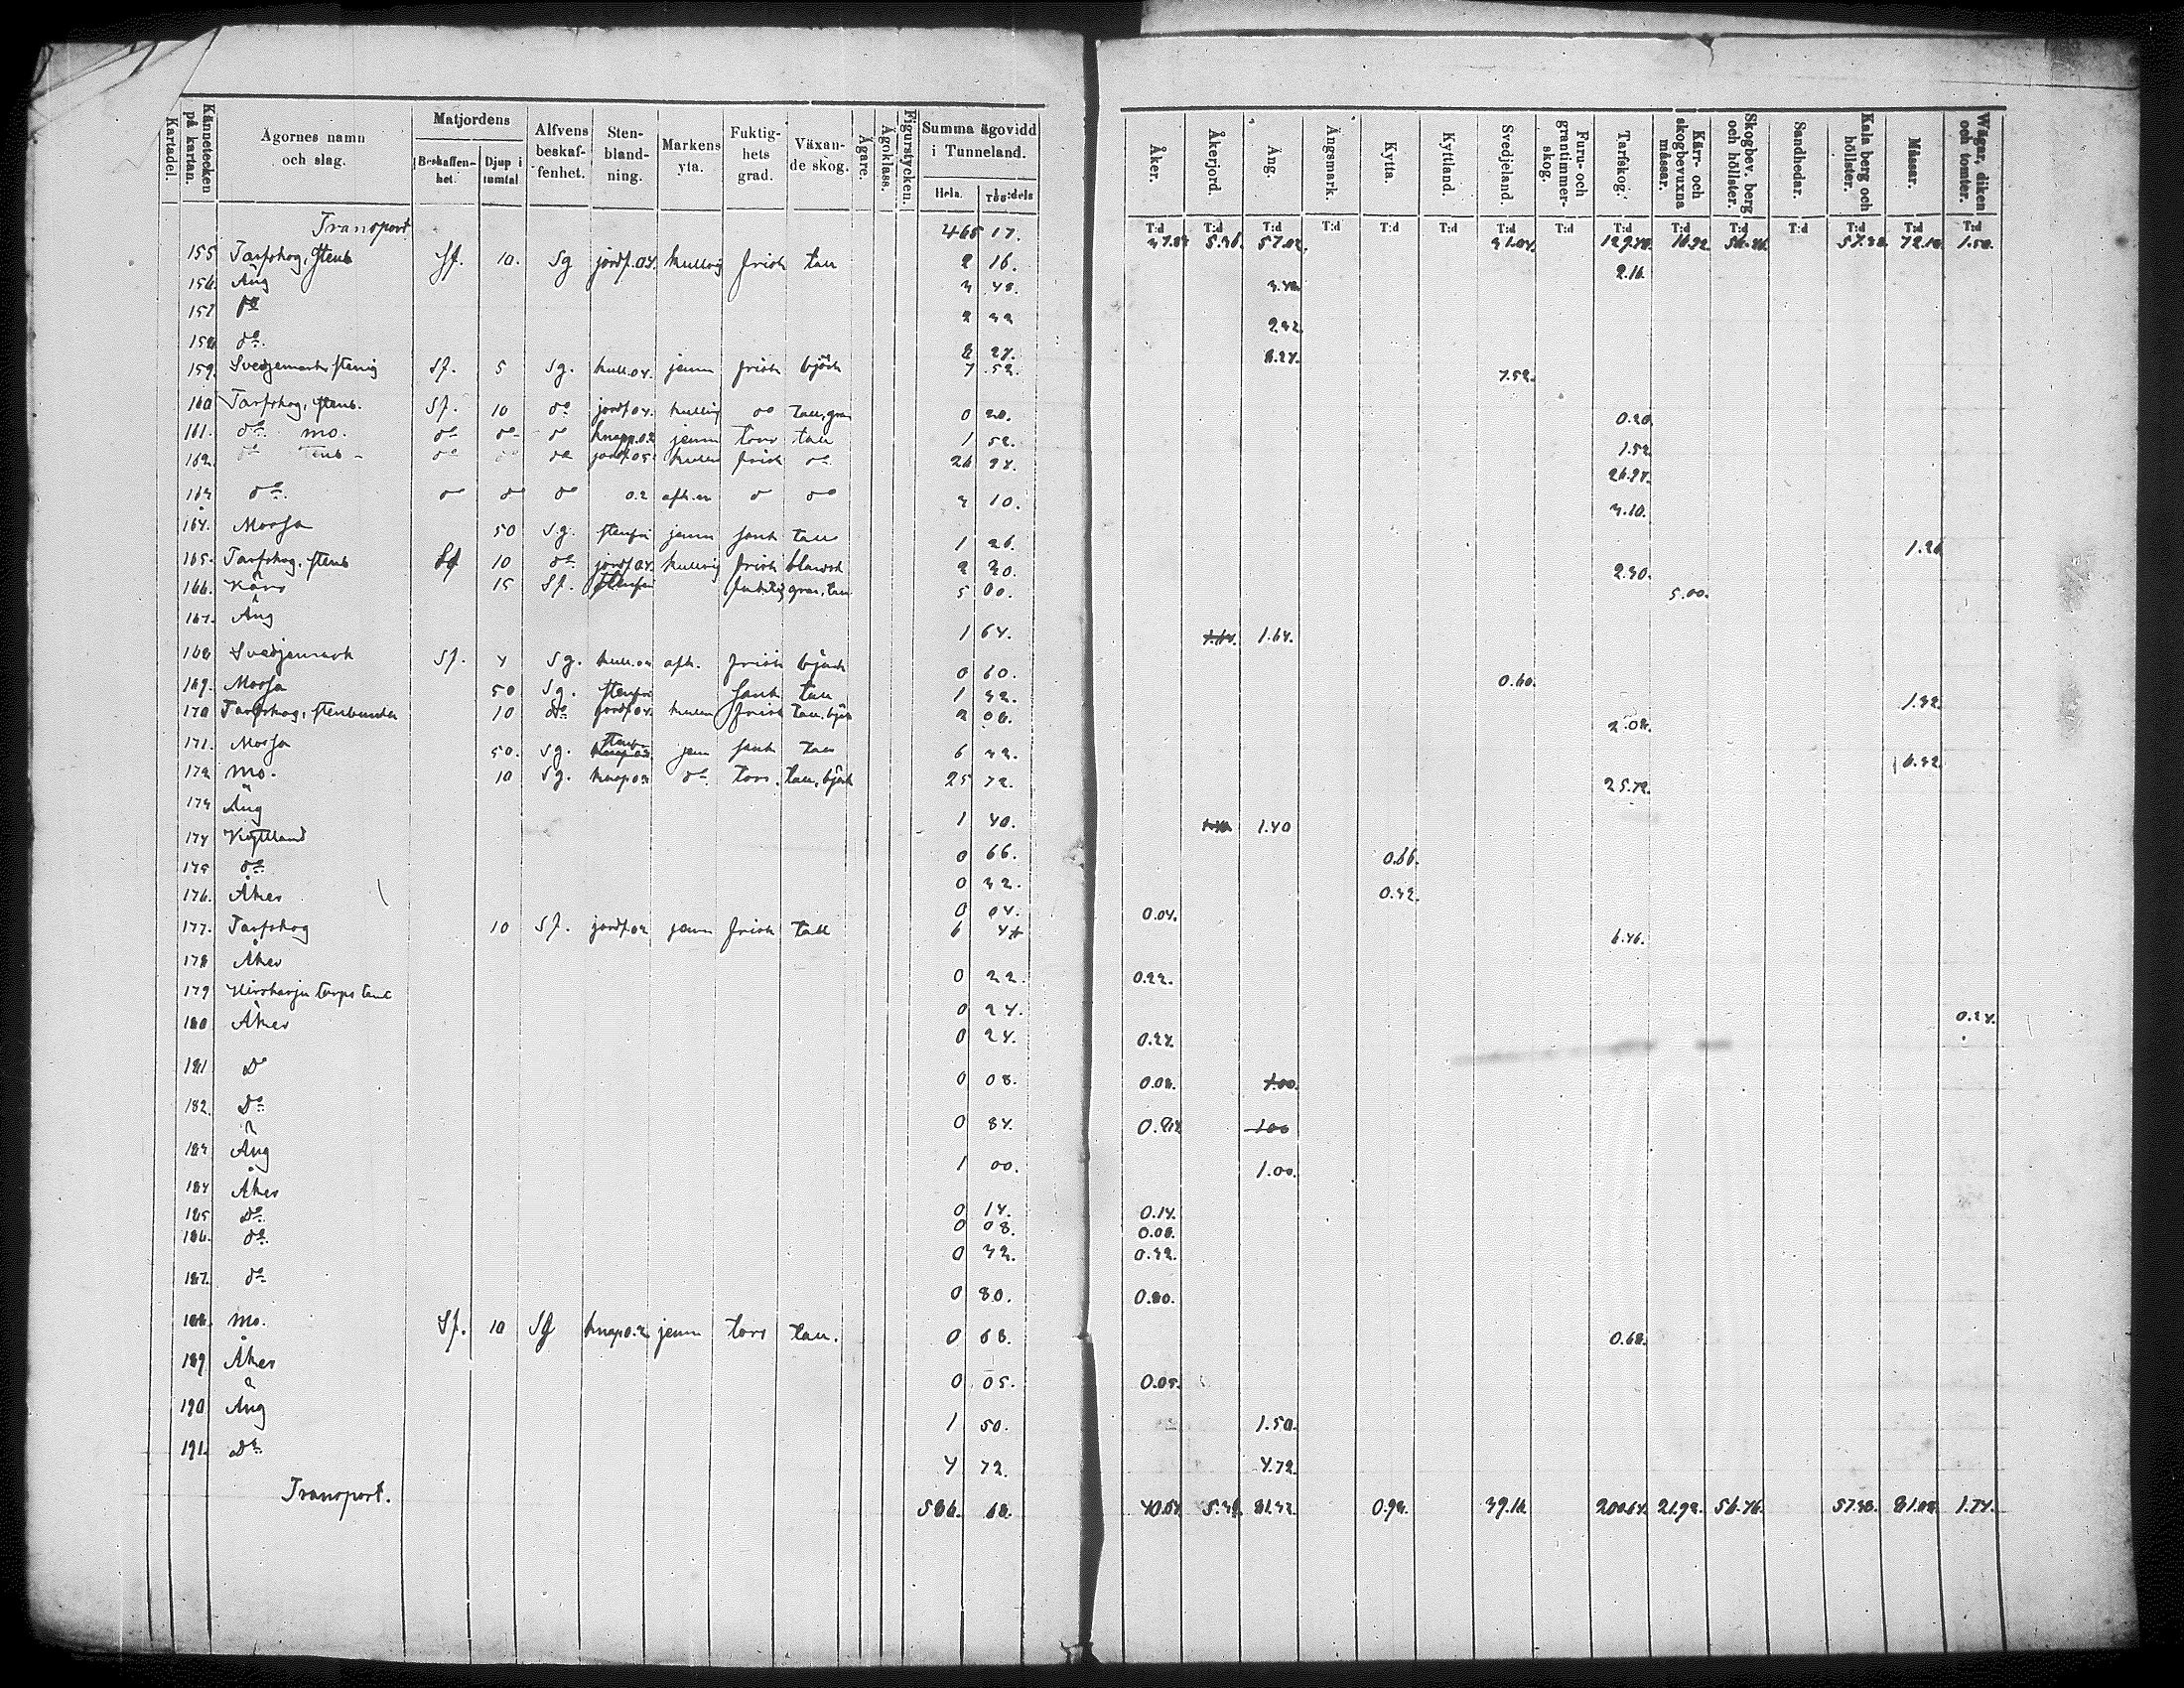 Kartadel.
Kännetecken på kartan.
Ägornes namn och slag.
Matjordens
Beskaffenhet.
Djup i tumtal
Alfvens beskaffenhet.
Stenblandning.
Markens yta.
Fuktighets grad.
Växande skog.
Ägare.
Ägoklass.
Figurstycken.
Summa ägovidd i Tunneland.
Hela.
100:dels
Åker. T:d
Åkerjord. T:d
Äng. T:d
Ängsmark. T:d
Kytta. T:d
Kyttland. T:d
Svedjeland. T:d
Furu- och grantimmerskog. T:d
Tarfskog. T:d
Kärr- och skogbevuxna måssar. T:d
Skogbev. berg och höllster. T:d
Sandhedar. T:d
Kala berg och höllster. T:d
Måssar. T:d
Wägar, diken och tomter. T:d
Transport 465 17. 57.02 72.10 1.50.
155 Tarfskog, stenb Sf. 10. Sg jordf.04. kullrig frisk tall 2 16. 2.16
156. Äng 3 48. 3.48
157 do 2 32 2.32
158 do. 8 27. 8.27.
159. Svedjemark stenig Sf. 5 Sg. kull.04. jemn frisk björk 7 52. 7.52.
160 Tarfskog, stenb. Sf. 10 do jordf.04. kullrig do tall, gran 0 20. 0.20
161. do mo. do do do knapp.02 jemn torr tall 1 52. 1.52
162. do stenb do do do jordf.05 kullr frisk do 26 94. 26.94.
163 do. do do do 0.2 afh. do do 3 10. 3.10.
164. Mossa 50 Sg. stenfri jemn sank tall 1 26. 1.26
165. Tarfskog, stenb Sf 10 do jordf.04. kullrig frisk blandsk 2 30. 2.30.
166. Kärr 15 Sf. stenfri fuktig gran, tall 5 00. 5.00.
167. Äng 1 64. 1.64. 1.64.
168 Svedjemark Sf. 4 Sg. kull.04 afh. frisk björk 0 60. 0.60.
169. Mossa 50 Sg. stenfri sank tall 1 32. 1.32
170 Tarfskog, stenbunden 10 do jordf.04. kullr frisk tall, björk 2 08. 2.08.
171. Mossa 50. Sg. stenfri jemn sank tall 6 32. 6.32
172 Mo. 10 Sg. knap.02 do torr. tall, björk 25 72. 25.72.
173 Äng 1 40. 1.40 1.40
174 Kyttland 0 66. 0.66.
175 do 0 32. 0.32.
176. Åker 0 04. 0.04.
177. Tarfskog 10 Sf. jordf.02 jemn frisk tall 6 46 6.46.
178 Åker 0 22. 0.22.
179 torps tomt 0 24. 0.24.
180 Åker 0 24. 0.24.
181 Do 0 08. 0.08. 1.00.
182. Do 0 84. 0.84 1.00
183 Äng 1 00. 1.00.
184 Åker 0 14. 0.14.
185 Do. 0 08. 0.08.
186. do. 0 32. 0.32.
187. do 0 80. 0.80.
188. Mo. Sf. 10 Sg knap.0.2 jemn torr tall. 0 68. 0.68.
189 Åker 0 05. 0.05.
190 Äng 1 50. 1.50.
191. Do 4 72. 4.72
Transport. 586. 68. 40.64 5.36 81.42 0.98. 39.16 200.64. 21.92. 56.76. 57.30. 81.08. 1.74.